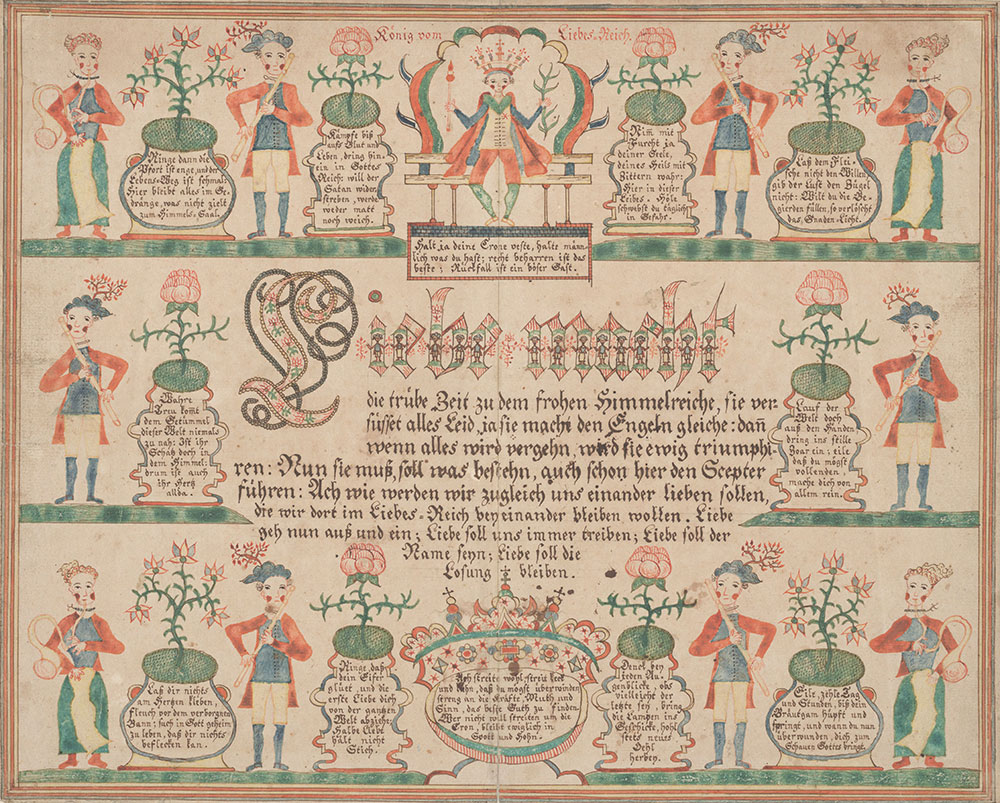 König vom Liebes-Reich.
Ringe dann die
Pfort ist enge, und der
Lebens-Weg ist schmal:
Hier bleibt alles im Ge-
dränge, was nicht zielt
zum Himmels-Saal.
Kämpfe biß
aufs Blut und
Leben, dring hin-
ein in Gottes
Reich: will der
Satan wider-
streben, werde
weder matt
noch weich.
Halt ja deine Crone veste, halte männ-
lich was du hast; recht beharren ist das
beste; Rückfall ist ein böser Gast.
Nim̄ mit
Furcht ja
deiner Seele,
deines Heils mit
Zittern wahr:
Hier in dieser
Leibes-Höle
schwebst du täglich
in Gefahr.
Laß dem Flei-
sche nicht den Willen
gib der Lust den Zügel
nicht: Wilt du die Be-
gierden füllen, so verlöscht
das Gnaden-Licht.
Liebe macht
die trübe Zeit zu dem frohen Himmelreiche, sie ver-
süsset alles Leid, ja sie macht den Engeln gleiche: dañ
wenn alles wird vergehn, wird sie ewig triumphi-
ren: Nun sie muß, soll was bestehn, auch schon hier den Scepter
führen: Ach wie werden wir zugleich uns einander lieben sollen,
die wir dort im Liebes-Reich bey einander bleiben wollen. Liebe
geh nun auß und ein; Liebe soll uns immer treiben; Liebe soll der
Name seyn; Liebe soll die
Losung bleiben.
Wahre
Treu kom̄t
dem Getümmel
dieser Welt niemals
zu nah: Ist ihr
Schatz doch in
dem Himmel:
drum ist auch
ihr Hertz
allda.
Lauf der
Welt doch
auß den Händen
dring ins stille
Zoar ein; eile
daß du mögst
vollenden,
mache dich von
allem rein.
Laß dir nichts
am Hertzen kleben,
fleuch vor dem verborgnen
Bann; such in Gott geheim
zu leben, daß dir nichts
beflecken kan.
Ringe, daß
dein Eifer
glüet, und die
erste Liebe dich
von der gantzen
Welt abziehe:
Halbe Liebe
hält nicht
Stich.
Ach streite wohl, streit keck
und kühn, daß du mögst überwinden
streng an die Kräfte, Muth und
Sinn, das beste Guth zu finden.
Wer nicht will streiten um die
Cron, bleibt ewiglich in
Spott und Hohn.
Denck bey
jeden Au-
genblicke, obs
vielleicht der
letzte sey, bring
die Lampen ins
Geschicke, hohl
stets neues
Oehl
herbey.
Eile, zehle Tag
und Stunden, biß dein
Bräutgam hüpft und
springt, und wann du nun
überwunden, dich zum
Schauen Gottes bringt.